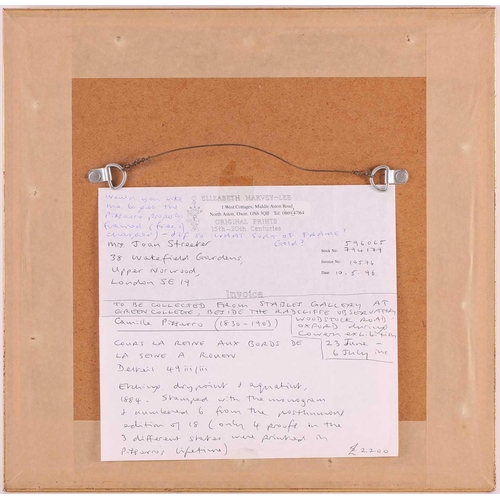 Would you like
me to have the
Pissarro
framed
WHAT SORT OF FRAME?
Gold?
ELIZABETH HARVEY-LEE
1 West Cottages, Middle Aston Road,
North Aston, Oxon OX6 3QB Tel: 0869
ORIGINAL PRINTS
15th-20th Centuries
Mrs Joan Streeter
38 Wakefield Gardens,
Upper Norwood,
London SE 19
596065
774179
Invoice No
Date 10.5.96
Invoice
TO BE COLLECTED FROM STABLES GALLERY AT
GREEN COLLEGE, BESIDE THE RADCLIFFE OBSERVATORY
WOODSTOCK ROAD
OXFORD during
exhibition
23 June -
6 July inc
Camille Pissarro (1830-1903)
COURS LA REINE AUX BORDS DE
LA SEINE A ROUEN
Delteil 49 iii/iii
Etching drypoint & aquatint,
1884. Stamped with the monogram
& numbered 6 from the posthumous
edition of 18 (only 4 proofs in the
3 different states were printed in
Pissarro's lifetime)
£2200